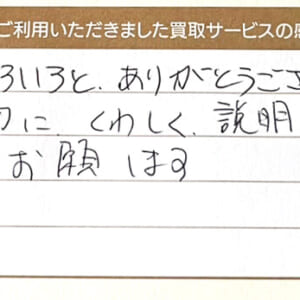 ご利用いただきました買取サービスの感
ろいろと、ありがとうござ
に、くわしく、説明
お願